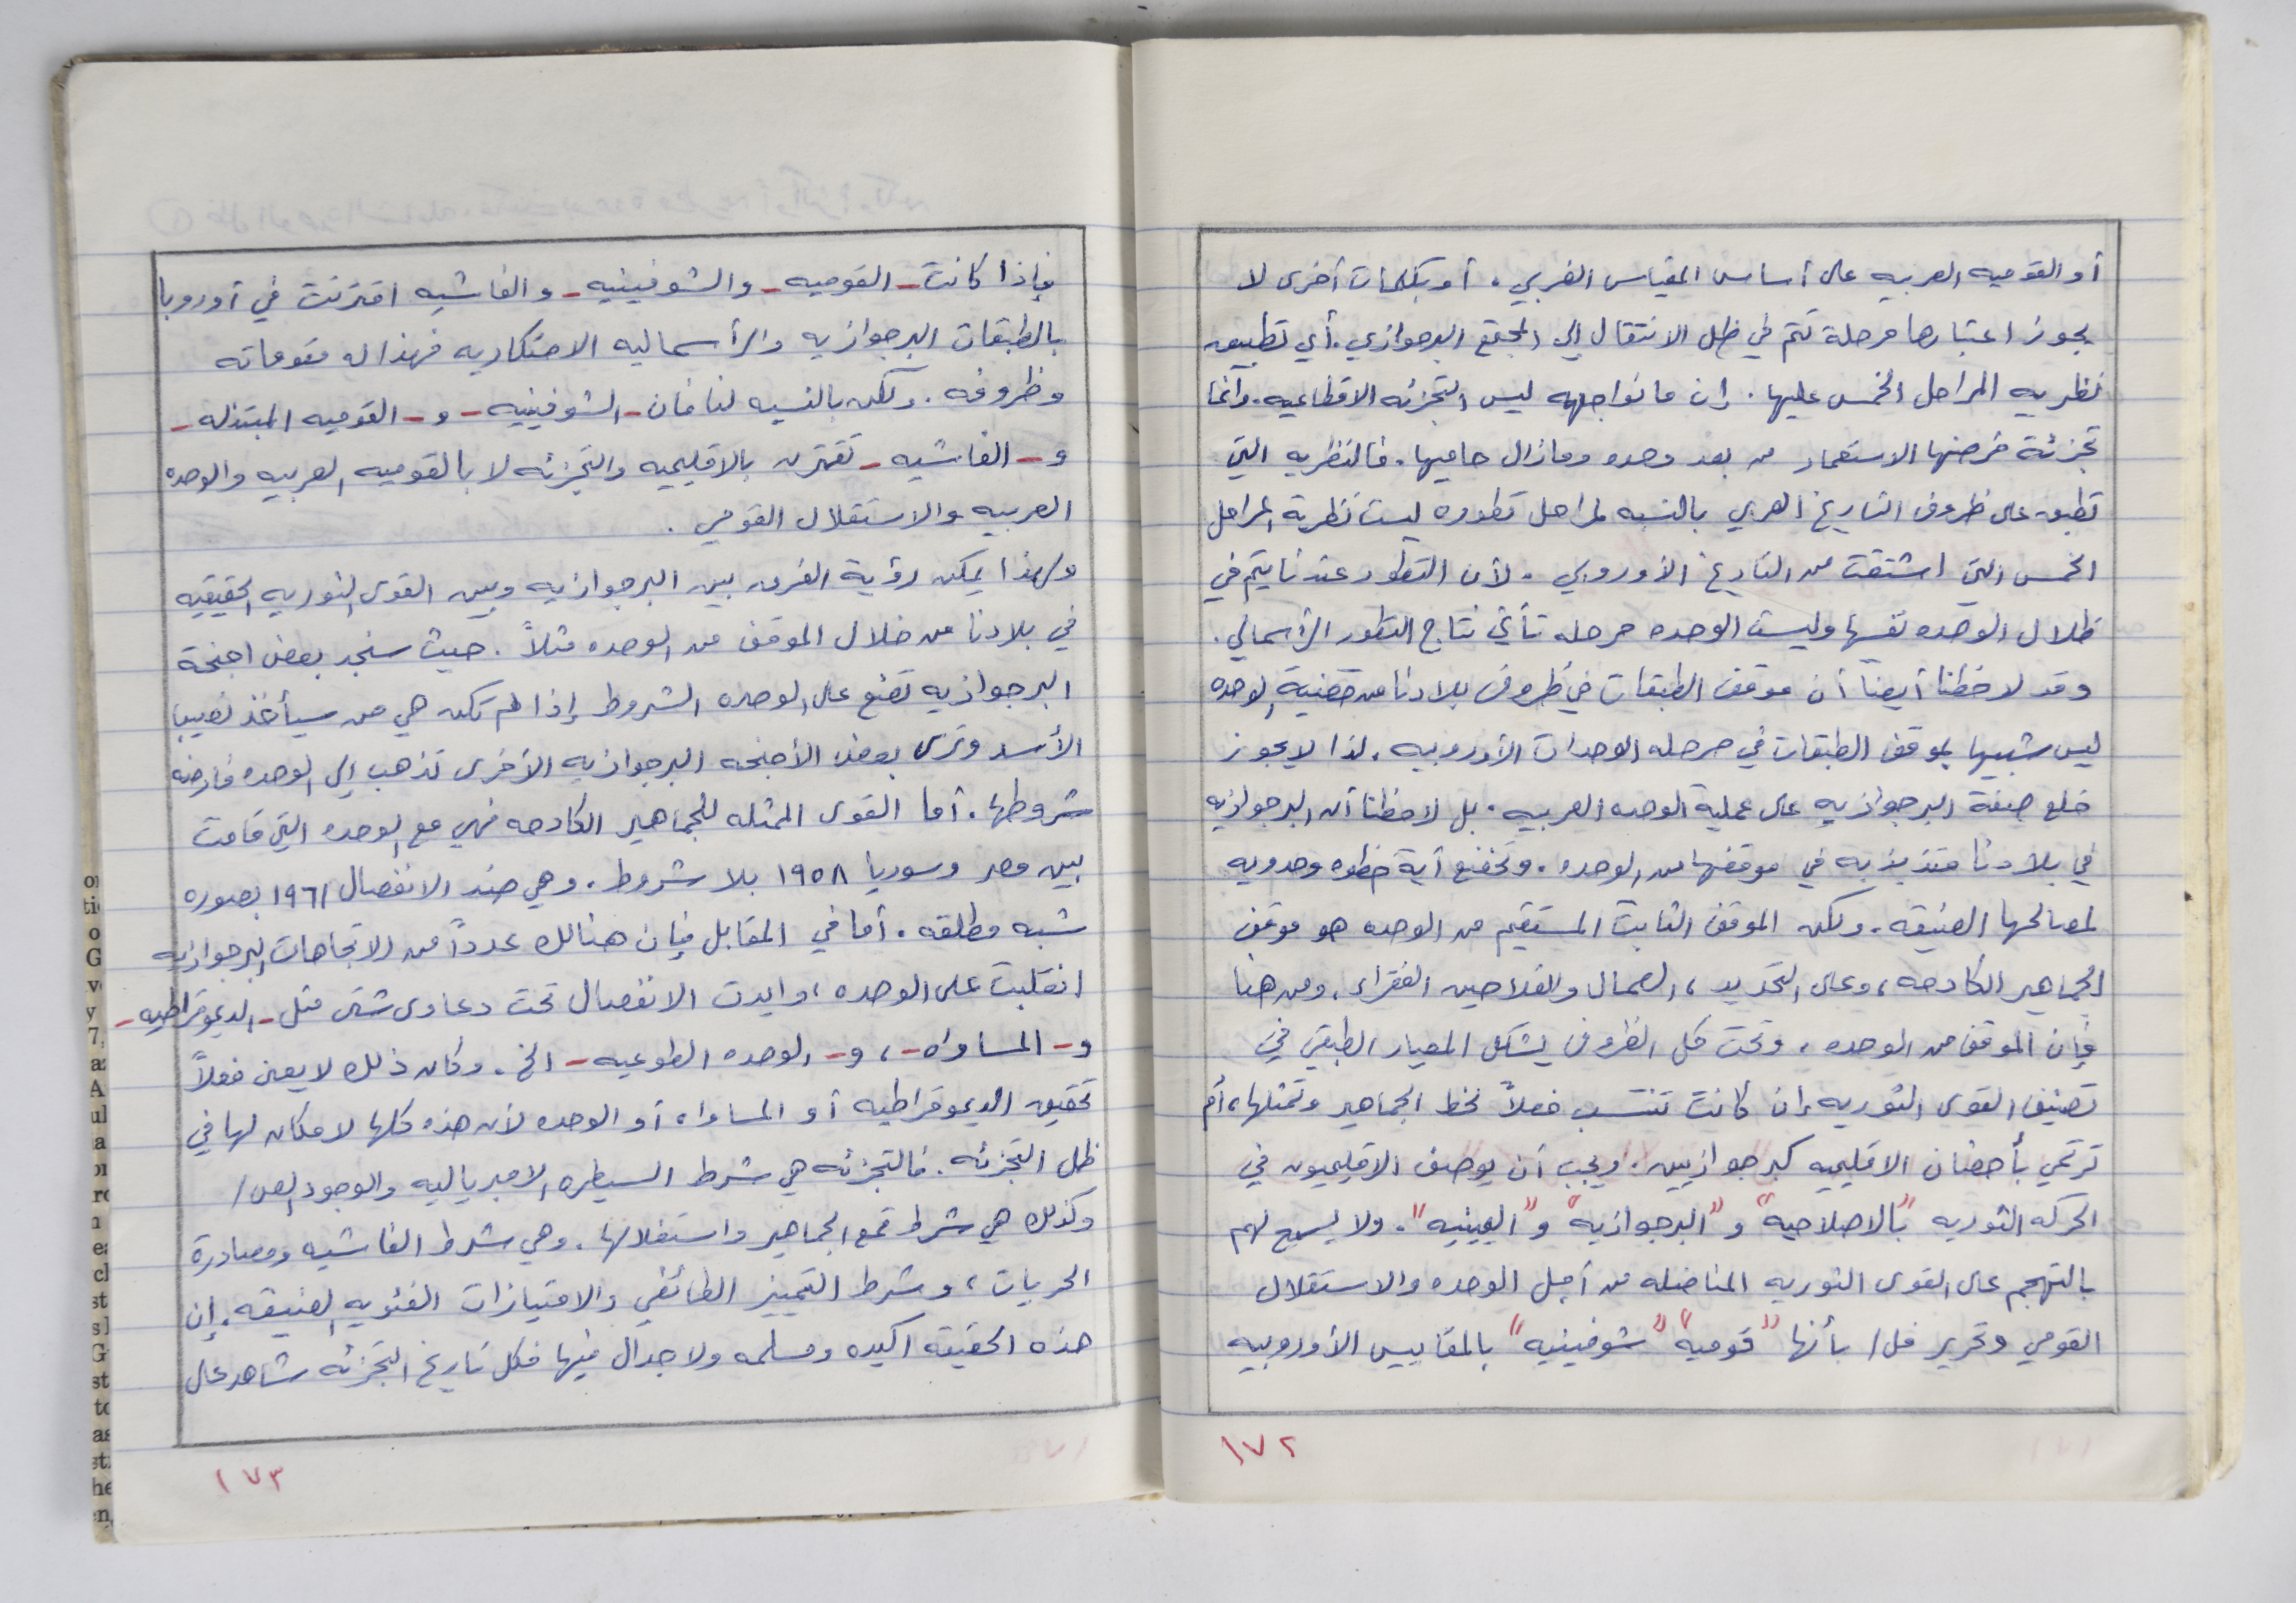 أو القوميه العربيه على أساس المقياس الغربي. أو بكلمات أخرى لا
يجوز اعتبارها مرحلة تتم في ظل الانتقال إلى المجتمع البرجوازي. أي تطبيق
نظريه المراحل الخمس عليها. إن ما نواجهه ليس التجزئه الاقطاعيه. وانما
تجزئة فرضها الاستعمار من بعد وحده ومازال حاميها. فالنظريه التي
تطبق على ظروف التاريخ العربي بالنسبه لمراحل تطوره ليست نظرية المراحل
الخمس التي اشتقت من التاريخ الأوروبي. لأن التطور عندنا يتم في
ظلال الوحده نفسها وليست الوحده مرحله تأتي نتاج التطور الرأسمالي.
وقد لاحظنا أيضا أن موقف الطبقات في ظروف بلادنا من قضية الوحده
ليس شبيها بموقف الطبقات في مرحله الوحدات الأوروبيه. لذا لا يجوز
خلع صبغة البرجوازيه على عملية الوحده العربيه. بل لاحظنا أن البرجوازيه
في بلادنا متذبذبه في موقفها من الوحده. وتخضع أية خطوه وحدويه
لمصالحها الضيقه. ولكن الموقف الثابت المستقيم من الوحده هو موقف
الجماهير الكادحه، وعلى التحديد، العمال والفلاحين الفقراء. ومن هنا
فإن الموقف من الوحده، وتحت كل الظروف يشكل المعيار الطبقي في
تصنيف القوى الثوريه إن كانت تنتسب فعلاً لخط الجماهير وتمثلها، أم
ترتمي بأحضان الاقليميه كبرجوازيين. ويجب أن يوصف الاقليميون في
الحركه الثوريه "بالاصلاحيه" و "البرجوازيه" و "اليمينيه". ولا يسمح لهم
بالتهجم على القوى الثوريه المناضله من أجل الوحده والاستقلال
القومي وتحرير فل/ بأنها "قوميه" "شوفينيه" بالمقاييس الأوروبيه
١٧٢
فإذا كانت - القوميه - والشوفينيه - والفاشيه اقترنت في أوروبا
بالطبقات البرجوازيه والرأسماليه الاحتكاريه فهذا له مقوماته
وظروفه. ولكن بالنسبه لنا فان - الشوفينيه - و - القوميه المبتذله -
و - الفاشيه - تقترن بالاقليميه والتجزئه لا بالقوميه العربيه والوحده
العربيه والاستقلال القومي.
وبهذا يمكن رؤية الفرق بين البرجوازيه وبين القوى الثوريه الحقيقيه
في بلادنا من خلال الموقف من الوحده مثلاً. حيث سنجد بعض اجنحة
البرجوازيه تضع على الوحده الشروط إذا لم تكن هي من سيأخذ نصيب
الأسد وترى بعض الأجنحه البرجوازيه الأخرى تذهب إلى الوحده فارضه
شروطها. أما القوى الممثله للجماهير الكادحه فهي مع الوحده التي قامت
بين مصر وسوريا ١٩٥٨ بلا شروط. وهي ضد الانفصال ١٩٦١ بصوره
شبه مطلقه. أما في المقابل فإن هنالك عدداً من الاتجاهات البرجوازيه
انقلبت على الوحده، وايدت الانفصال تحت دعاوى شتى مثل - الديموقراطيه -
و - المساواه -، و - الوحده الطوعيه - الخ. وكان ذلك لا يعني فعلاً
تحقيق الديموقراطيه أو المساواه أو الوحده لأن هذه كلها لا مكان لها في
ظل التجزئه. فالتجزئه هي شرط السيطره الامبرياليه والوجود الص/
وكذلك هي شرط قمع الجماهير واستغلالها. وهي شرط الفاشيه ومصادرة
الحريات، وشرط التمييز الطائفي والامتيازات الفئويه الضيقه. إن
هذه الحقيقه اكيده ومسلمه ولا جدال فيها فكل تاريخ التجزئه شاهد على
١٧٣